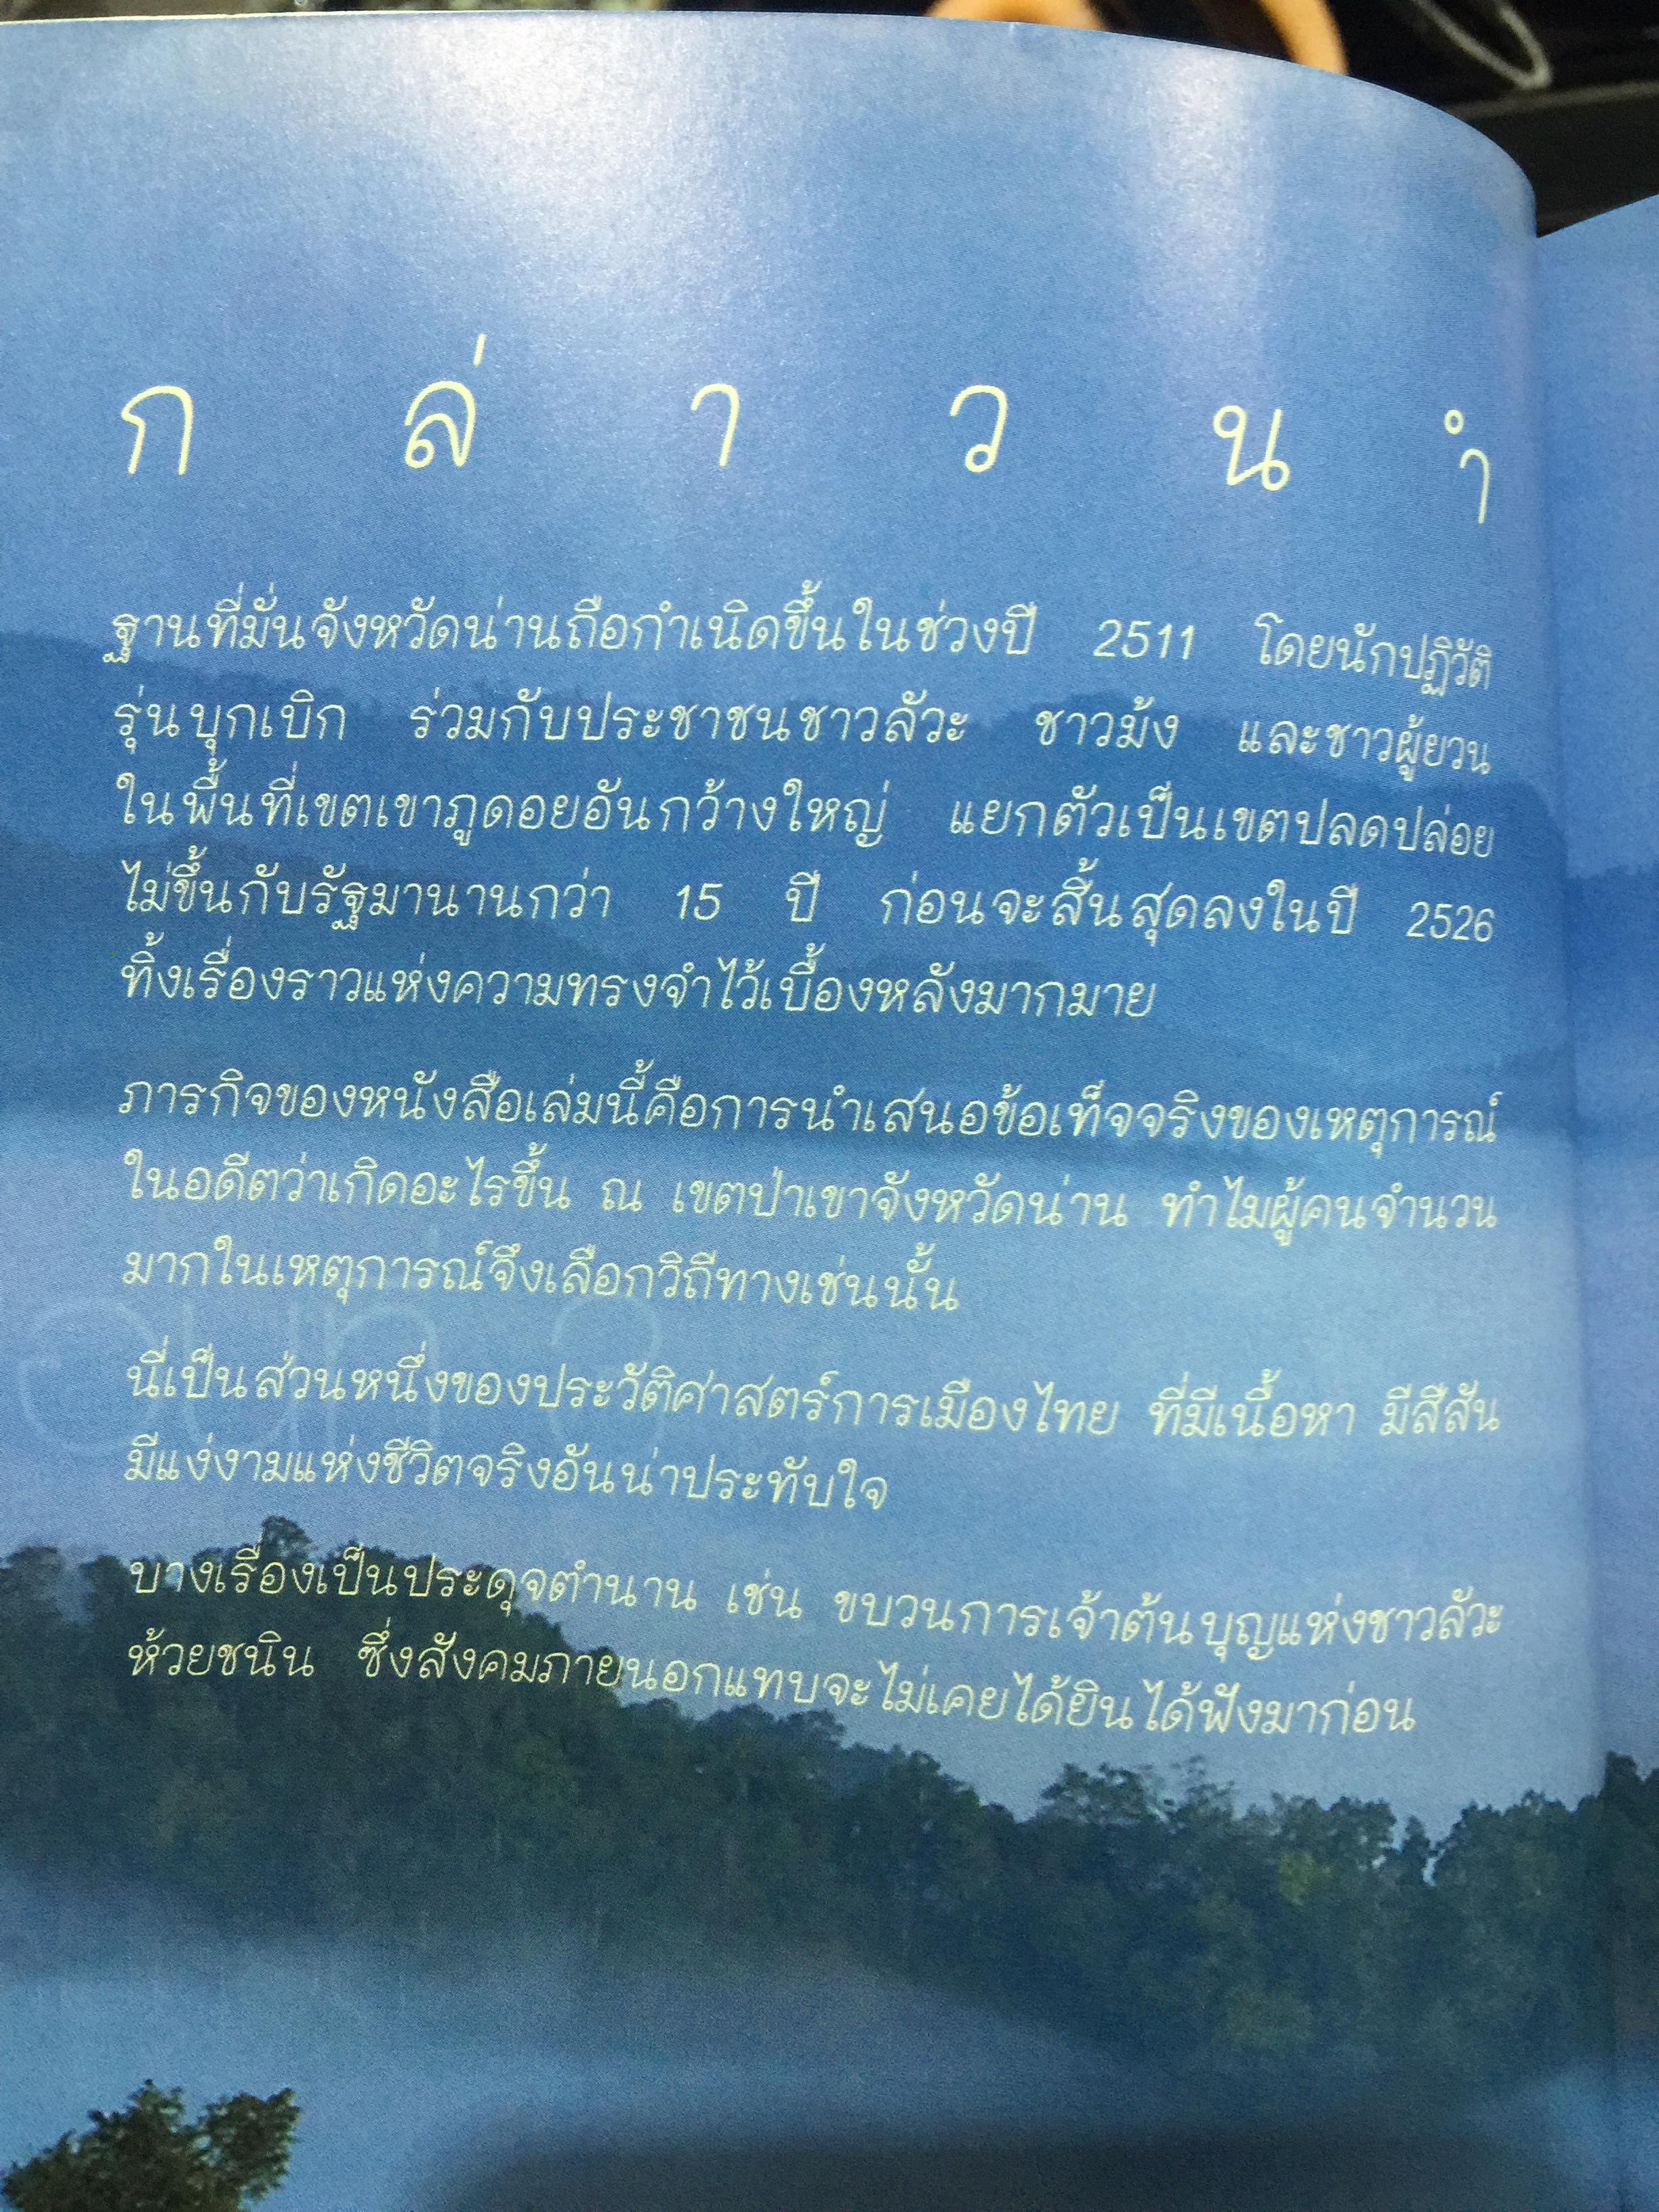 กล่าวนำ
ฐานที่มั่นจังหวัดน่านถือกำเนิดขึ้นในช่วงปี 2511 โดยนักปฏิวัติ
รุ่นบุกเบิก ร่วมกับประชาชนชาวลัวะ ชาวม้ง และชาวผู้ยวน
ในพื้นที่เขตเขาภูดอยอันกว้างใหญ่ แยกตัวเป็นเขตปลดปล่อย
ไม่ขึ้นกับรัฐมานานกว่า 15 ปี ก่อนจะสิ้นสุดลงในปี 2526
ทิ้งเรื่องราวแห่งความทรงจำไว้เบื้องหลังมากมาย
ภารกิจของหนังสือเล่มนี้คือการนำเสนอข้อเท็จจริงของเหตุการณ์
ในอดีตว่าเกิดอะไรขึ้น ณ เขตป่าเขาจังหวัดน่าน ทำไมผู้คนจำนวน
มากในเหตุการณ์จึงเลือกวิถีทางเช่นนั้น
นี่เป็นส่วนหนึ่งของประวัติศาสตร์การเมืองไทย ที่มีเนื้อหา มีสีสัน
มีแง่งามแห่งชีวิตจริงอันน่าประทับใจ
บางเรื่องเป็นประดุจตำนาน เช่น ขบวนการเจ้าต้นบุญแห่งชาวลัวะ
ห้วยชนิน ซึ่งสังคมภายนอกแทบจะไม่เคยได้ยินได้ฟังมาก่อน